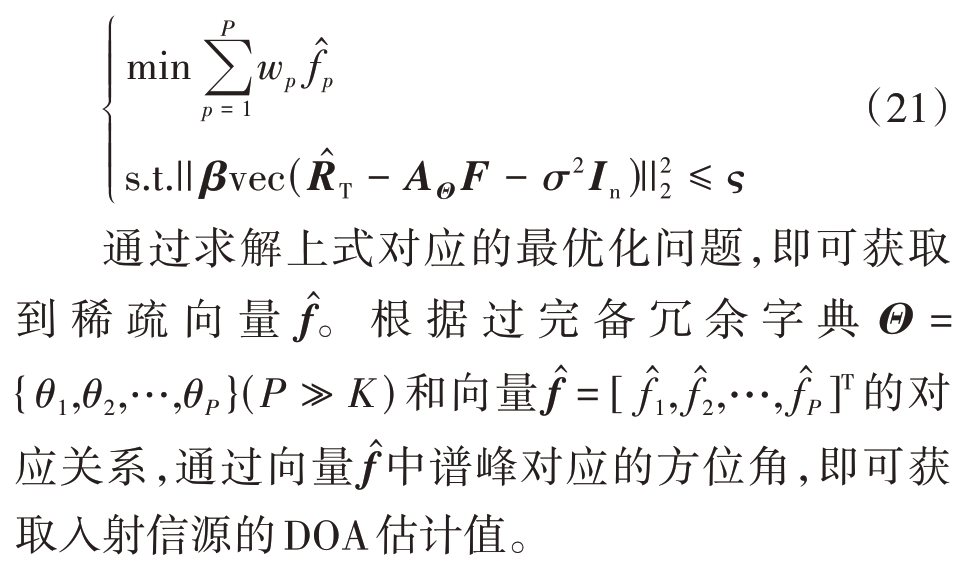 min ∑_{p=1}^{P} w_p f̂_p
(21)
s.t.||βvec(R̂_T − A_Θ F − σ²I_n)||₂² ≤ ς
通过求解上式对应的最优化问题,即可获取
到稀疏向量f̂。根据过完备冗余字典Θ=
{θ₁,θ₂,⋯,θ_P}(P ≫ K)和向量f̂=[f̂₁,f̂₂,⋯,f̂_P]ᵀ的对
应关系,通过向量f̂中谱峰对应的方位角,即可获
取入射信源的DOA估计值。